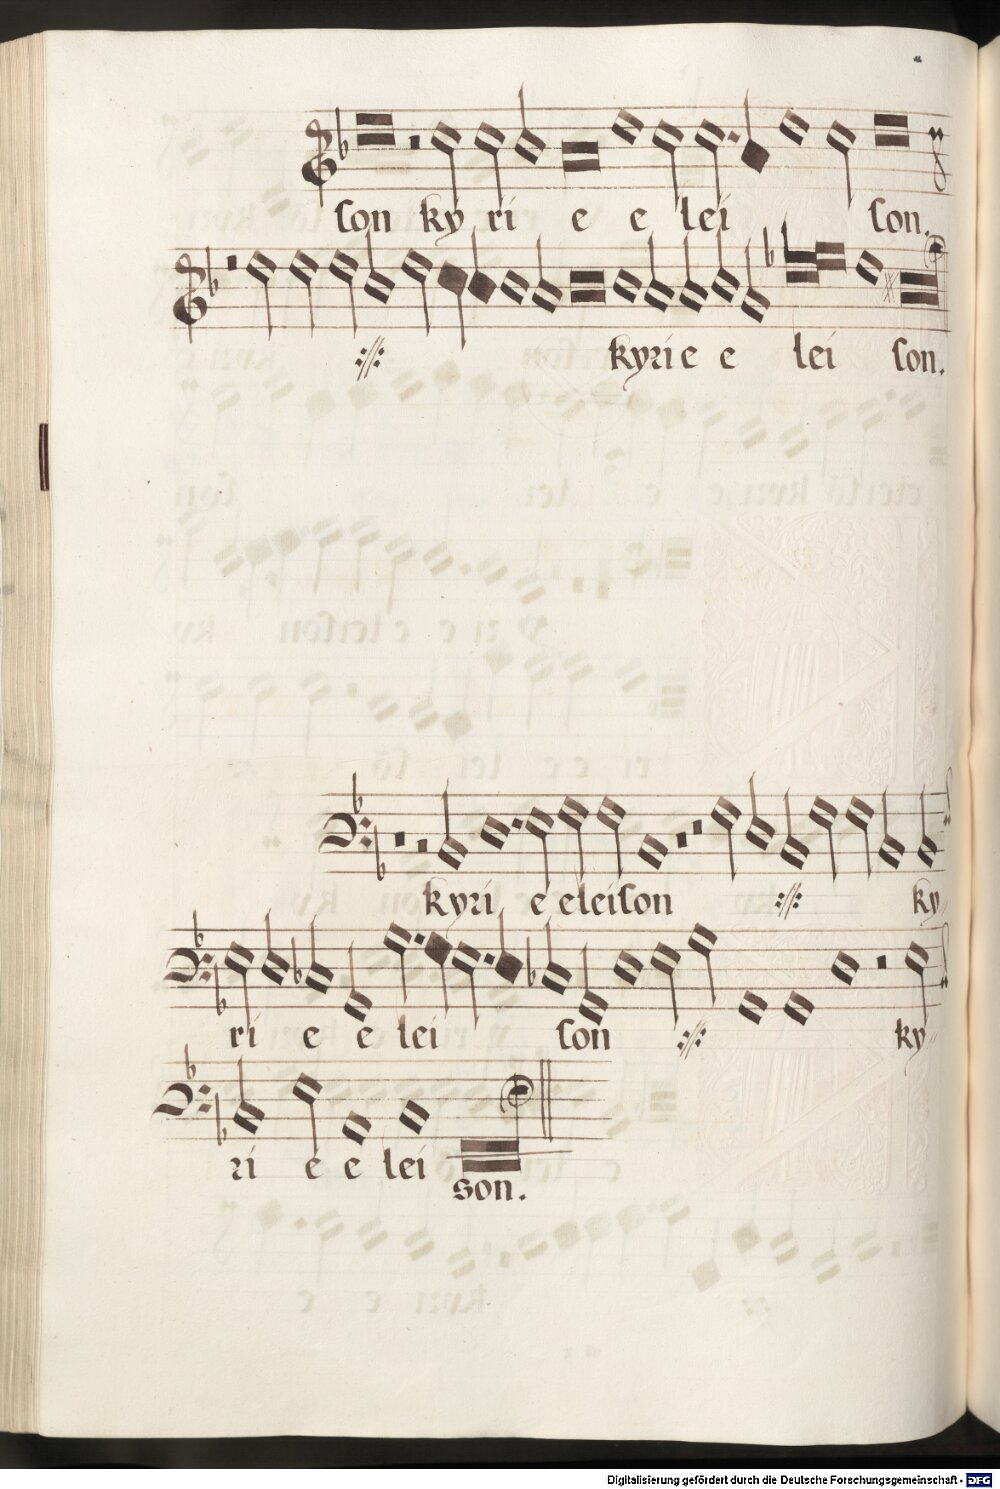 ſon ky ri e e lei ſon.
kyri e e lei ſon.
kyri e eleiſon ky
ri e e lei ſon ky
ri e e lei
son.
Digitalisierung gefördert durch die Deutsche Forschungsgemeinschaft - DFG